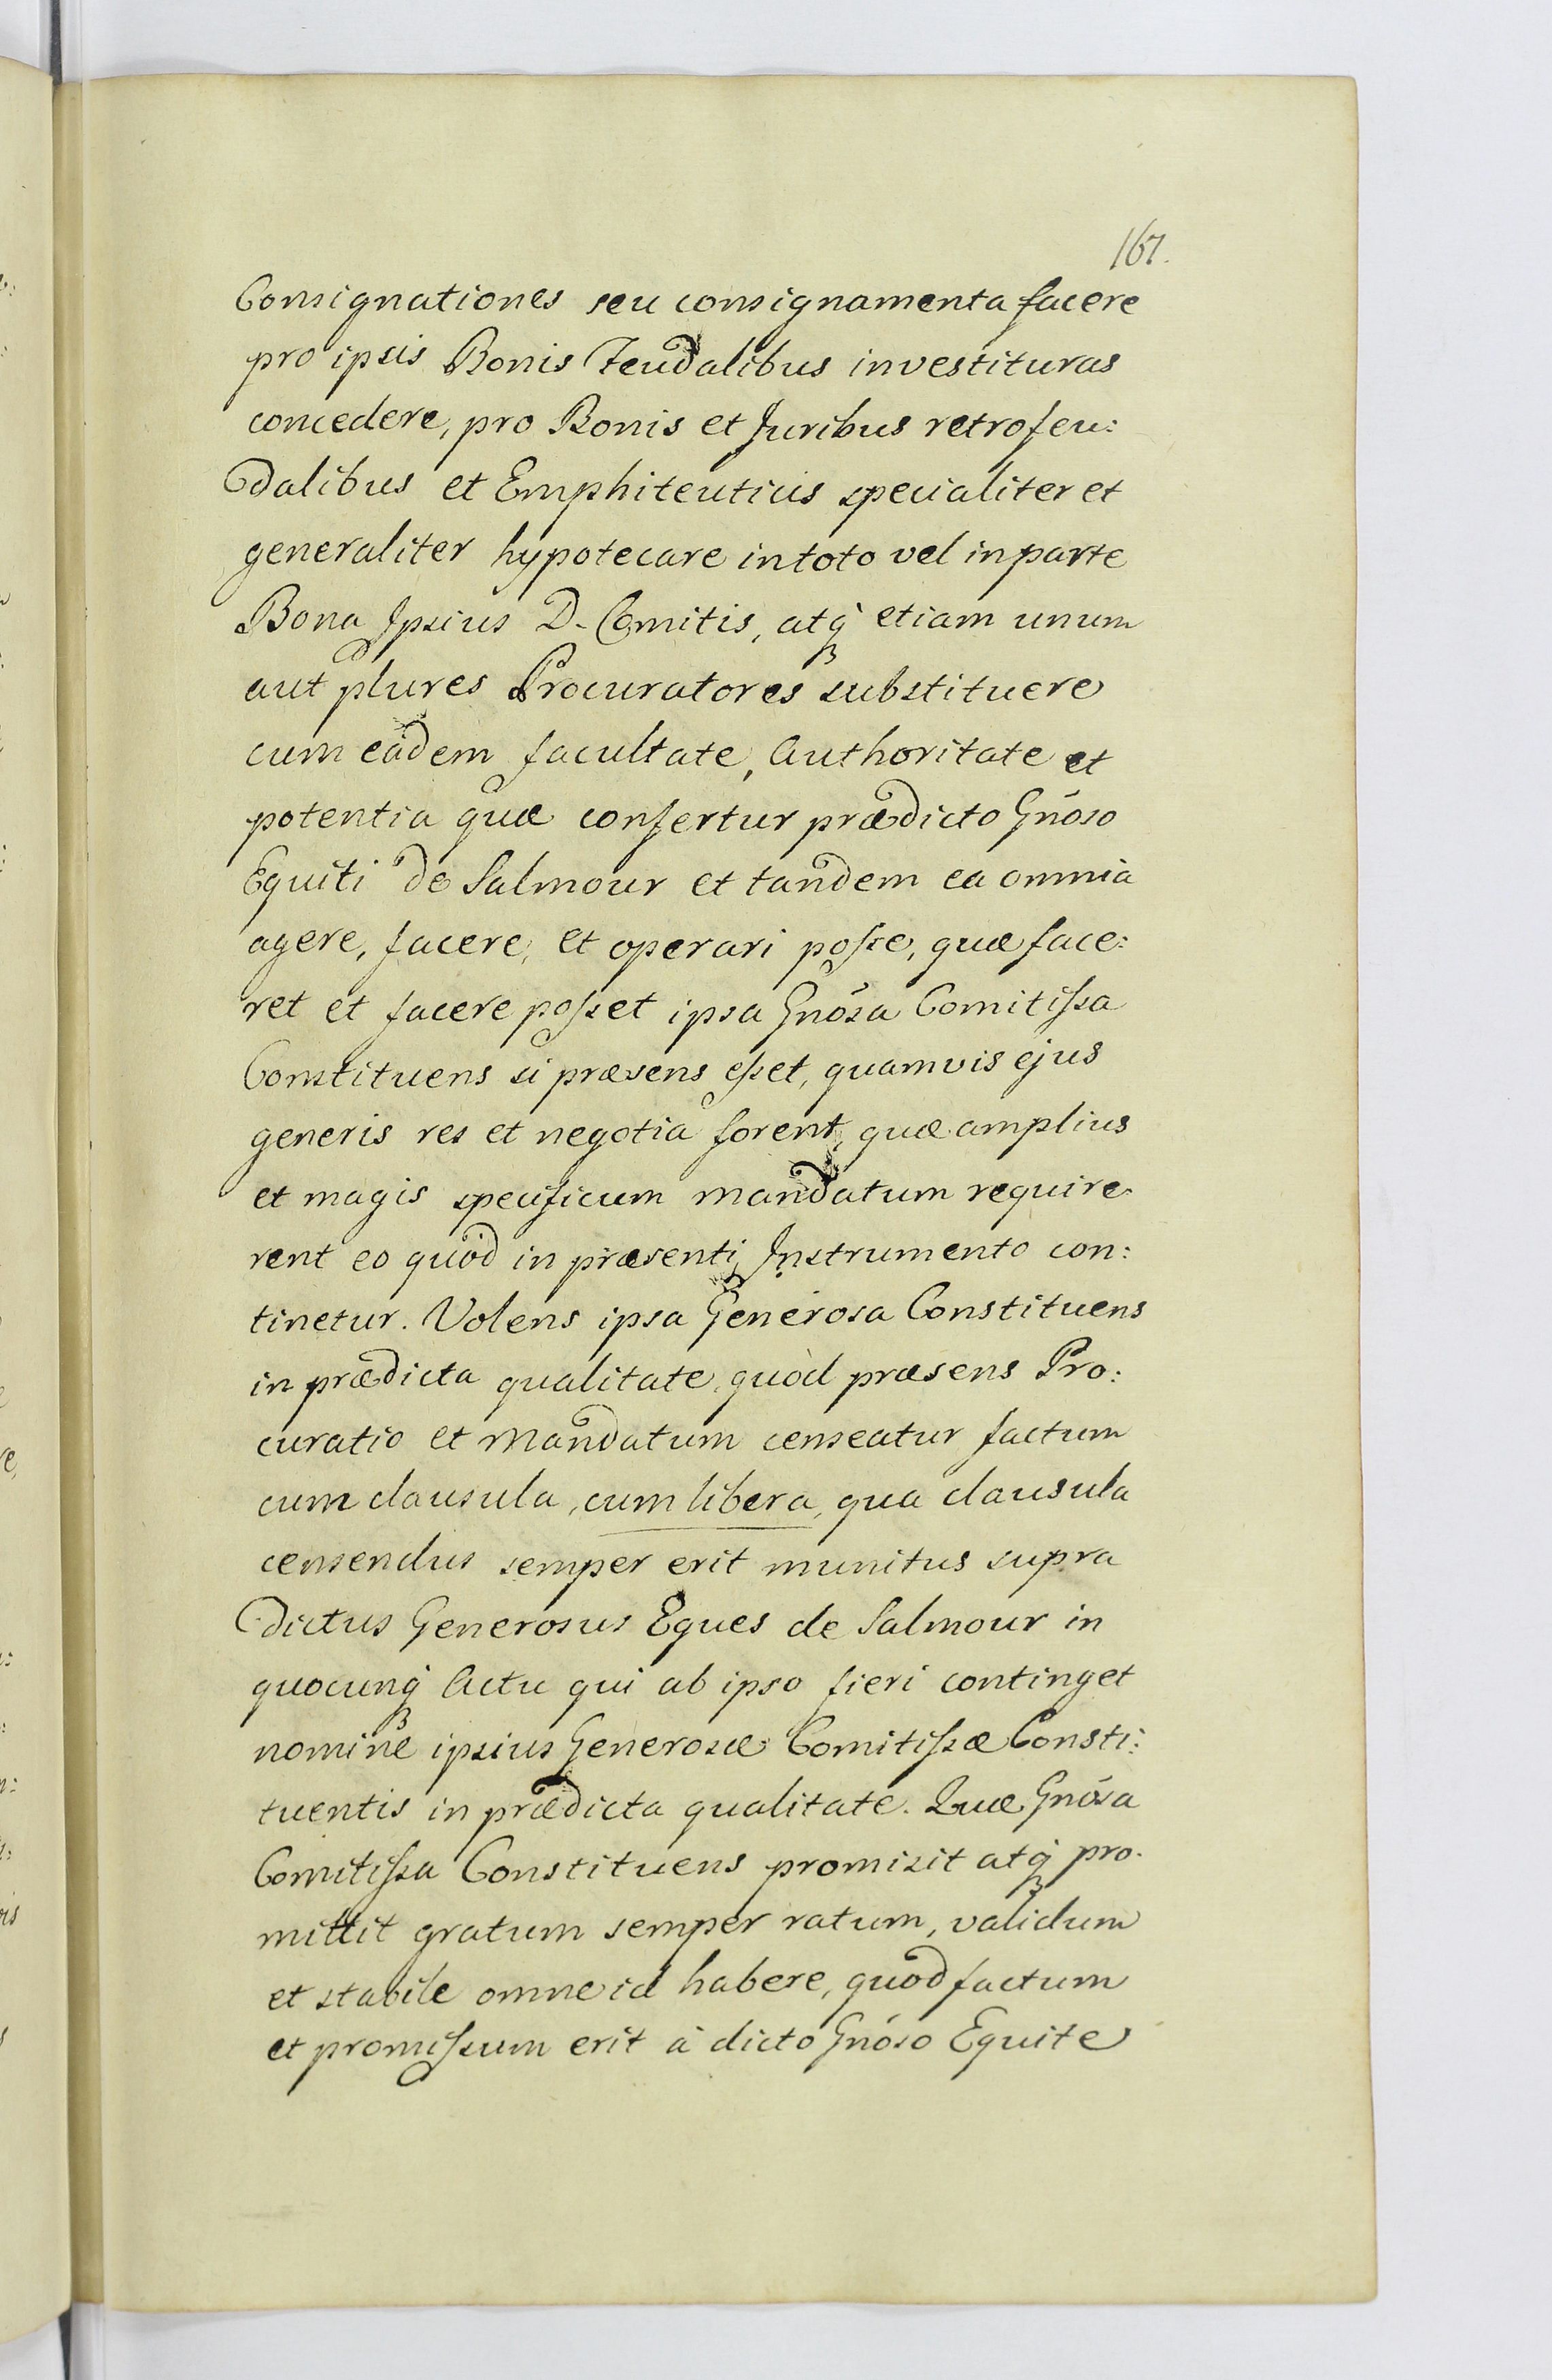 167.
Consignationes seu consignamenta facere
pro ipsis Bonis Feudalibus investituras
concedere, pro Bonis et Juribus retrofeu:
dalibus et Emphiteuticis specialiter et
generaliter hypotecare in toto vel in parte
Bona Ipsius D. Comitis, atqꝫ etiam unum
aut plures Procuratores substituere
cum eâdem facultate, Authoritate et
potentia quæ confertur prædicto Gnōso
Equiti de Salmour et tandem ea omnia
agere, facere, et operari poſse, quæ face:
ret et facere poſset ipsa Gnōsa Comitiſsa
Constituens si præsens eſset, quamvis ejus
generis res et negotia forent, quæ amplius
et magis specificum mandatum require-
rent eo quòd in præsenti Instrumento con:
tinetur. Volens ipsa Generosa Constituens
in prædicta qualitate, quòd præsens Pro:
curatio et Mandatum censeatur factum
cum clausula, cum libera, qua clausula
censendus semper erit munitus supra
dictus Generosus Eques de Salmour in
quocunqꝫ Actu qui ab ipso fieri continget
nomine ipsius Generosæ Comitiſsæ Consti:
tuentis in prædicta qualitate. Quæ Gnōsa
Comitiſsa Constituens promisit atqꝫ pro-
mittit gratum semper ratum, validum
et stabile omne id habere, quod factum
et promiſsum erit à dicto Gnōso Equite